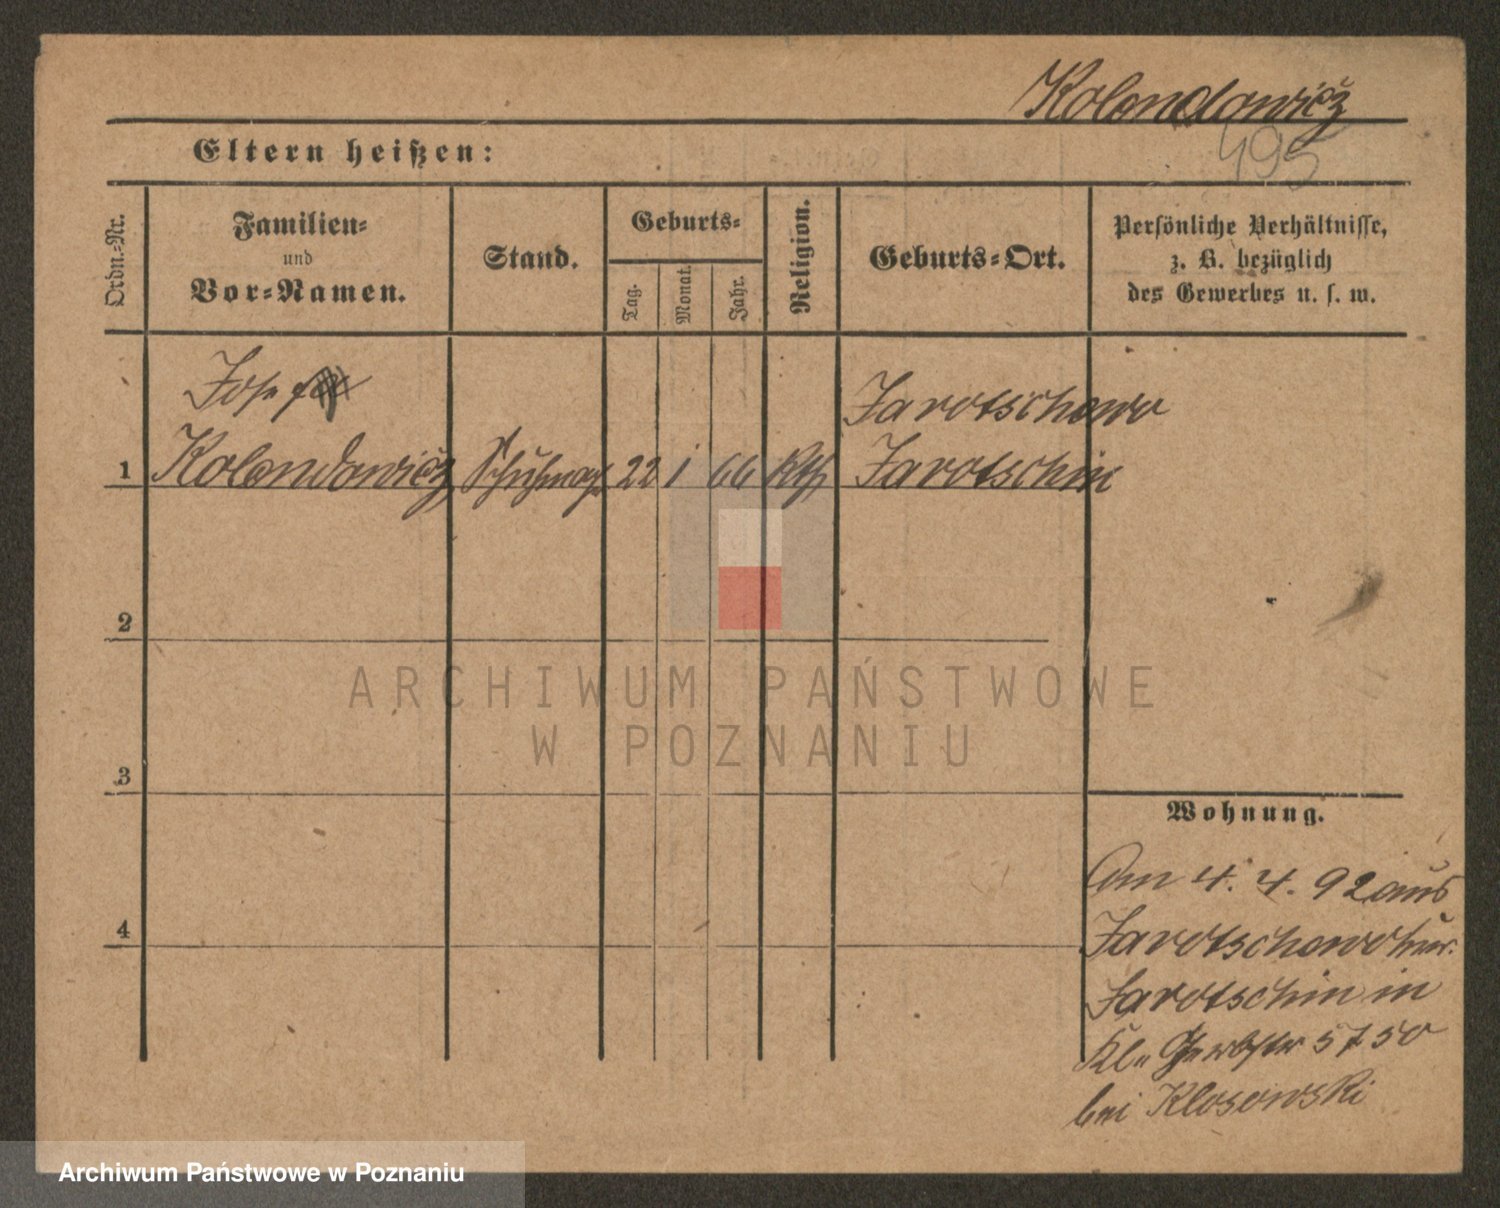 Kolendowicz
495
Eltern heißen:
Ordn.-Nr.
Familien-
und
Vor-Namen.
Stand.
Geburts-
Tag.
Monat.
Jahr.
Religion.
Geburts-Ort.
Persönliche Verhältnisse,
z. B. bezüglich
des Gewerbes u. s. w.
Josef
Jarotschewo
1 Kolendowicz Schuhmach 22 1 66 Kth Jarotschin
2
ARCHIWUM PAŃSTWOWE
W POZNANIU
3
Wohnung.
Am 4. 4. 92 aus
4
Jarotschewo
Jarotschin in
Kl. Gerbstr 5 7 50
bei Klosowski
Archiwum Państwowe w Poznaniu